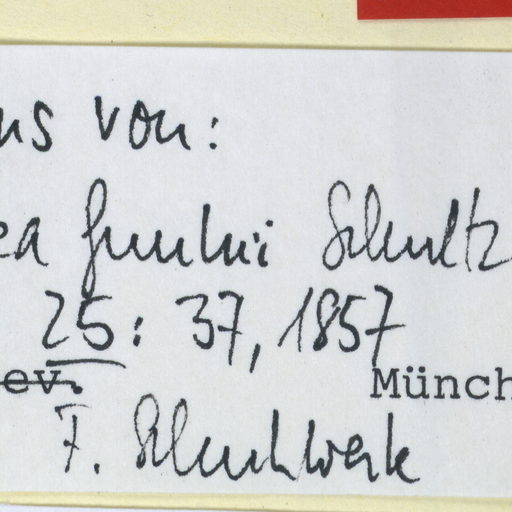 us von:
ea funkii Schultz
25: 37, 1857
ev. Münch
F. Schuhwerk